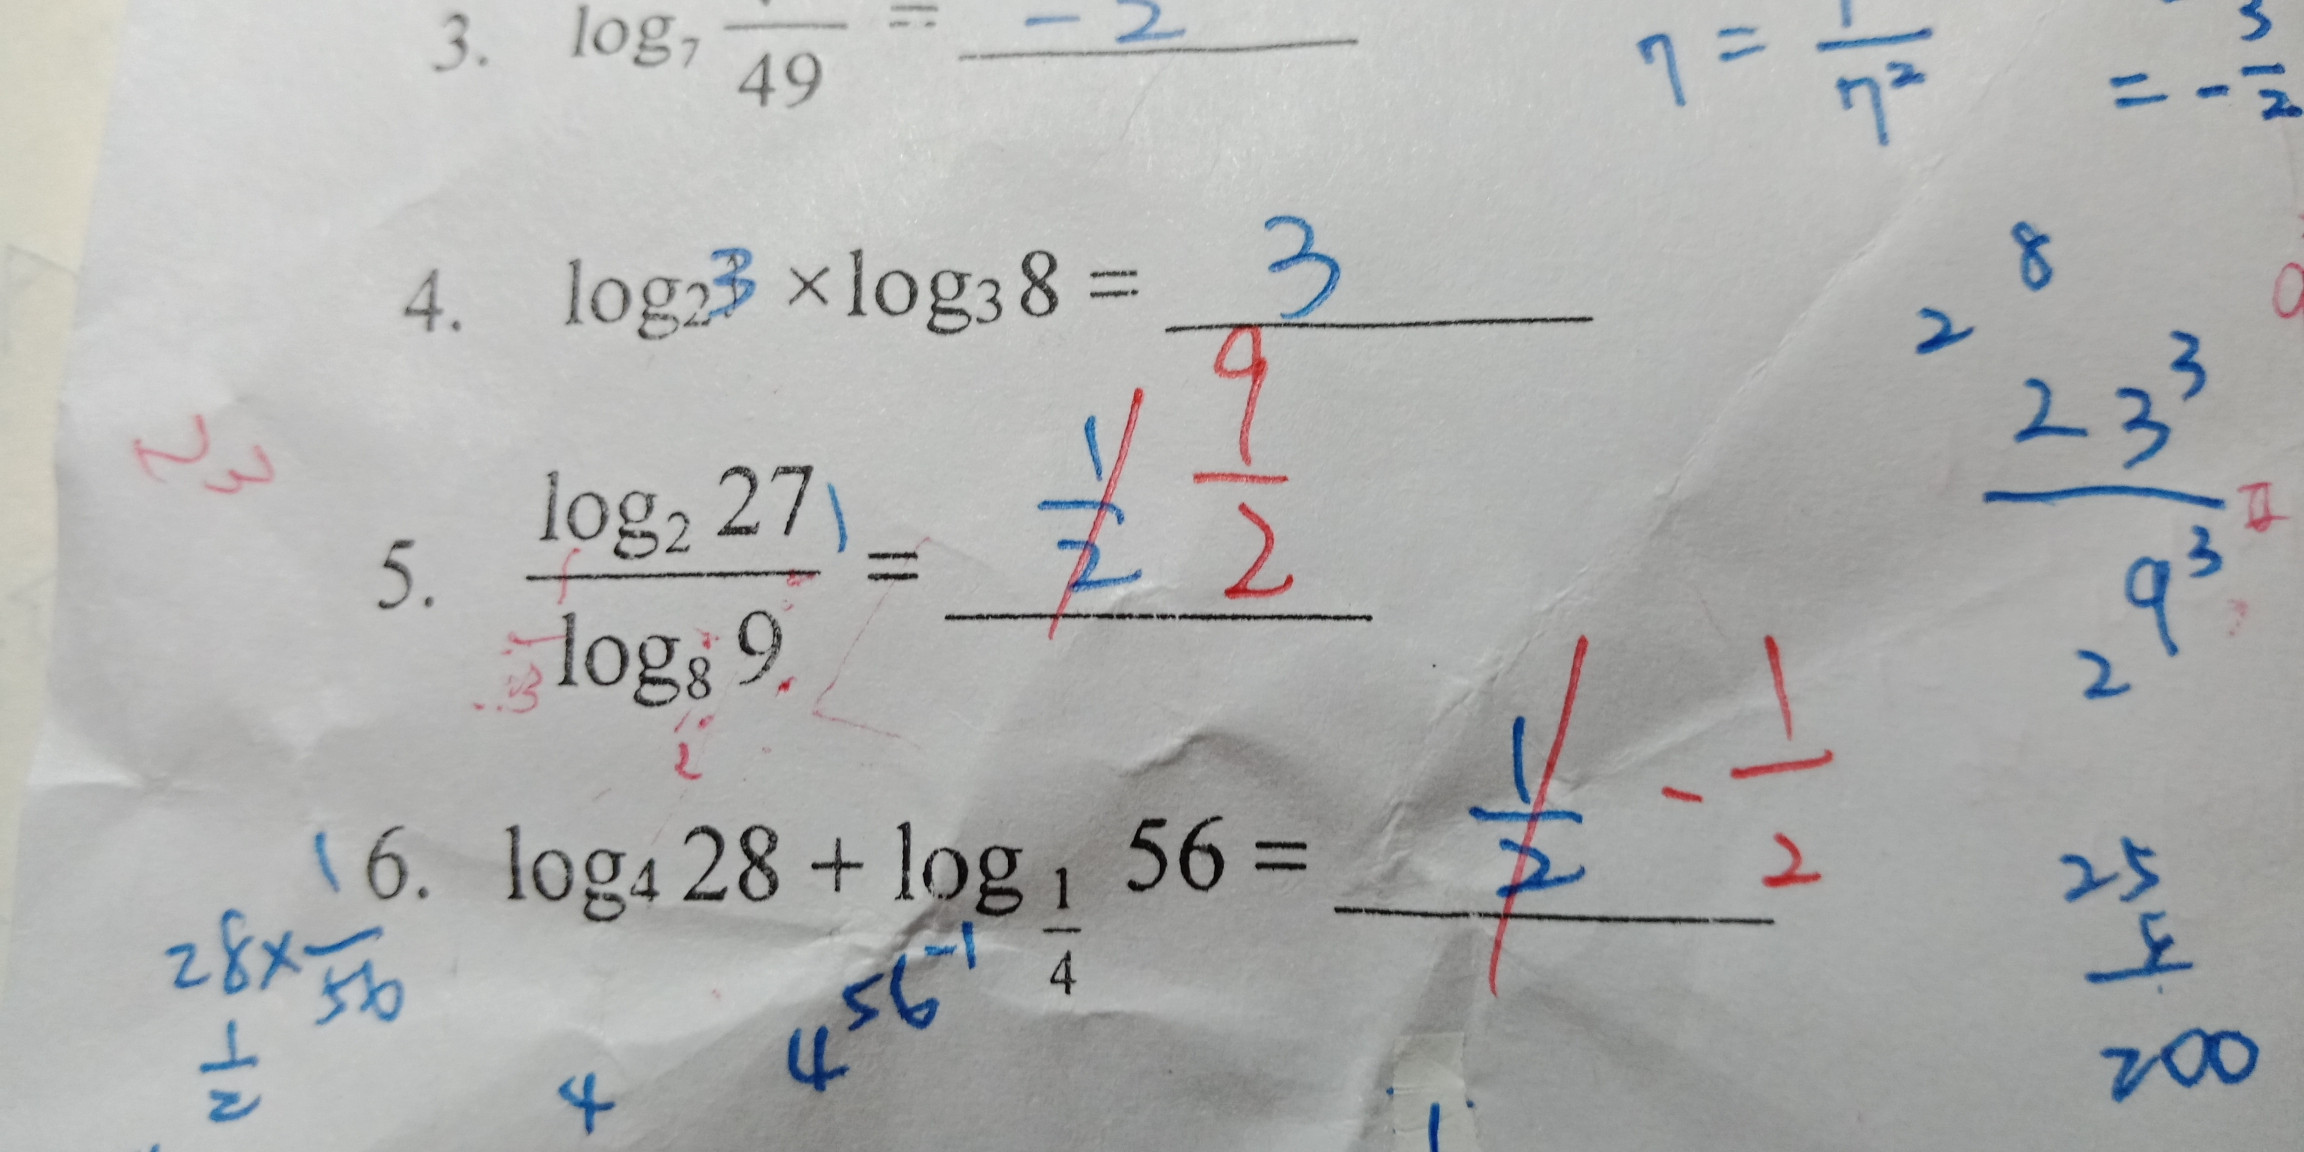 3. log₇ —/49 = -2
7 = 1/7²
= -3/2
4. log₂3 × log₃8 = 3
8
2
2 3³
9³
2
5. log₂27 / log₈9 = 1/2 9/2
1
3
2
6. log₄28 + log_{1/4} 56 = 1/2 -1/2
28 × 1/56
1/2
4
4 56⁻¹
25
200
1